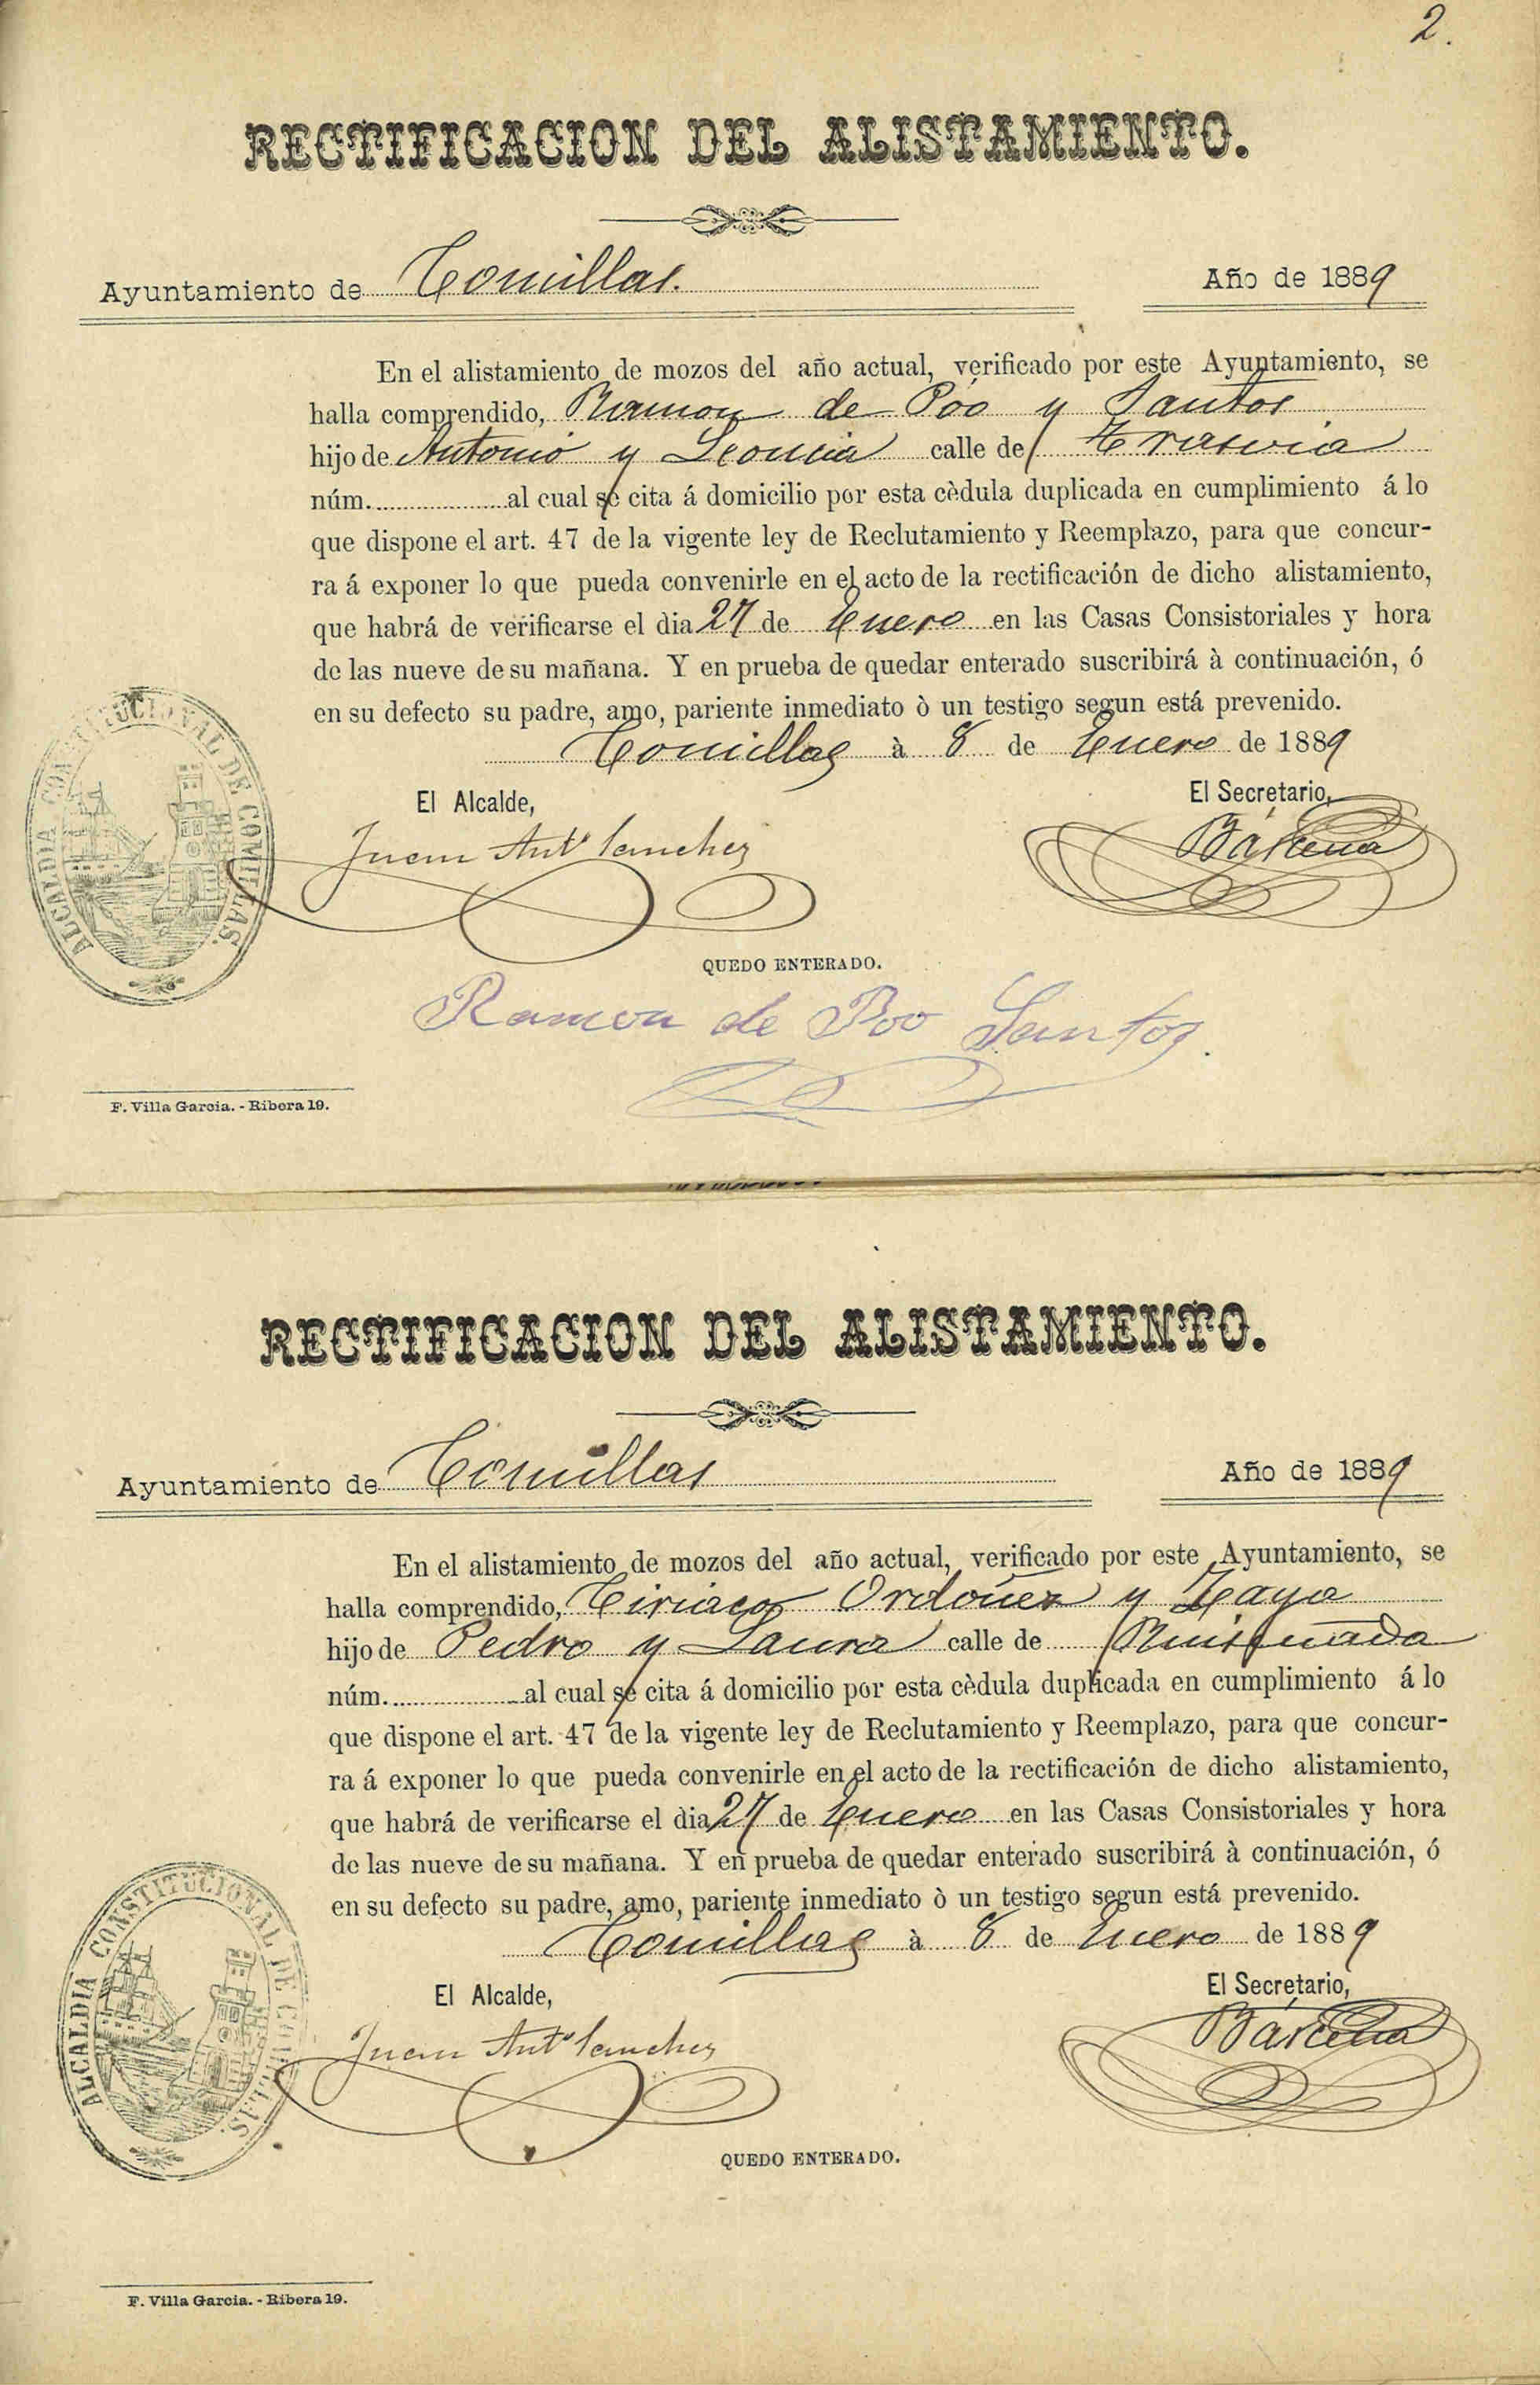 2.
RECTIFICACION DEL ALISTAMIENTO.
Ayuntamiento de Comillas. Año de 1889
En el alistamiento de mozos del año actual, verificado por este Ayuntamiento, se
halla comprendido, Ramon de Póo y Santos
hijo de Antonio y Leoncia calle de Trasvia
núm. al cual se cita á domicilio por esta cèdula duplicada en cumplimiento á lo
que dispone el art. 47 de la vigente ley de Reclutamiento y Reemplazo, para que concur-
ra á exponer lo que pueda convenirle en el acto de la rectificación de dicho alistamiento,
que habrá de verificarse el dia 27 de Enero en las Casas Consistoriales y hora
de las nueve de su mañana. Y en prueba de quedar enterado suscribirá à continuación, ó
en su defecto su padre, amo, pariente inmediato ò un testigo segun está prevenido.
Comillas à 8 de Enero de 1889
El Alcalde, El Secretario,
Juan Antº Sanchez Bárcena
ALCALDIA CONSTITUCIONAL DE COMILLAS.
QUEDO ENTERADO.
Ramon de Poo Santos.
F. Villa Garcia. - Ribera 19.
RECTIFICACION DEL ALISTAMIENTO.
Ayuntamiento de Comillas Año de 1889
En el alistamiento de mozos del año actual, verificado por este Ayuntamiento, se
halla comprendido, Ciriaco Ordoñez y Zaya
hijo de Pedro y Laura calle de Ruiseñada
núm. al cual se cita á domicilio por esta cèdula duplicada en cumplimiento á lo
que dispone el art. 47 de la vigente ley de Reclutamiento y Reemplazo, para que concur-
ra á exponer lo que pueda convenirle en el acto de la rectificación de dicho alistamiento,
que habrá de verificarse el dia 27 de Enero en las Casas Consistoriales y hora
de las nueve de su mañana. Y en prueba de quedar enterado suscribirá à continuación, ó
en su defecto su padre, amo, pariente inmediato ò un testigo segun está prevenido.
Comillas à 8 de Enero de 1889
El Alcalde, El Secretario,
Juan Antº Sanchez Bárcena
ALCALDIA CONSTITUCIONAL DE COMILLAS.
QUEDO ENTERADO.
F. Villa Garcia. - Ribera 19.